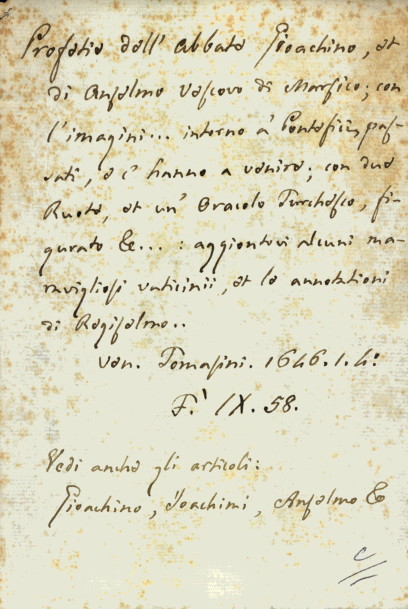 Profetie dell' Abbate Gioachino, et
di Anselmo Vescovo di Marsico; con
l'imagini... intorno a' Pontefici pas-
sati, e c' hanno a venire; con due
Ruote, et un' Oracolo Turchesco, fi-
gurato &c...: aggiontovi alcuni ma-
ravigliosi vaticinii, et le annotationi
di Regiselmo..
Ven. Tomasini. 1646. 1. 4:
F.' IX. 58.
Vedi anche gli articoli:
Gioachino, Joachimi, Anselmo &c